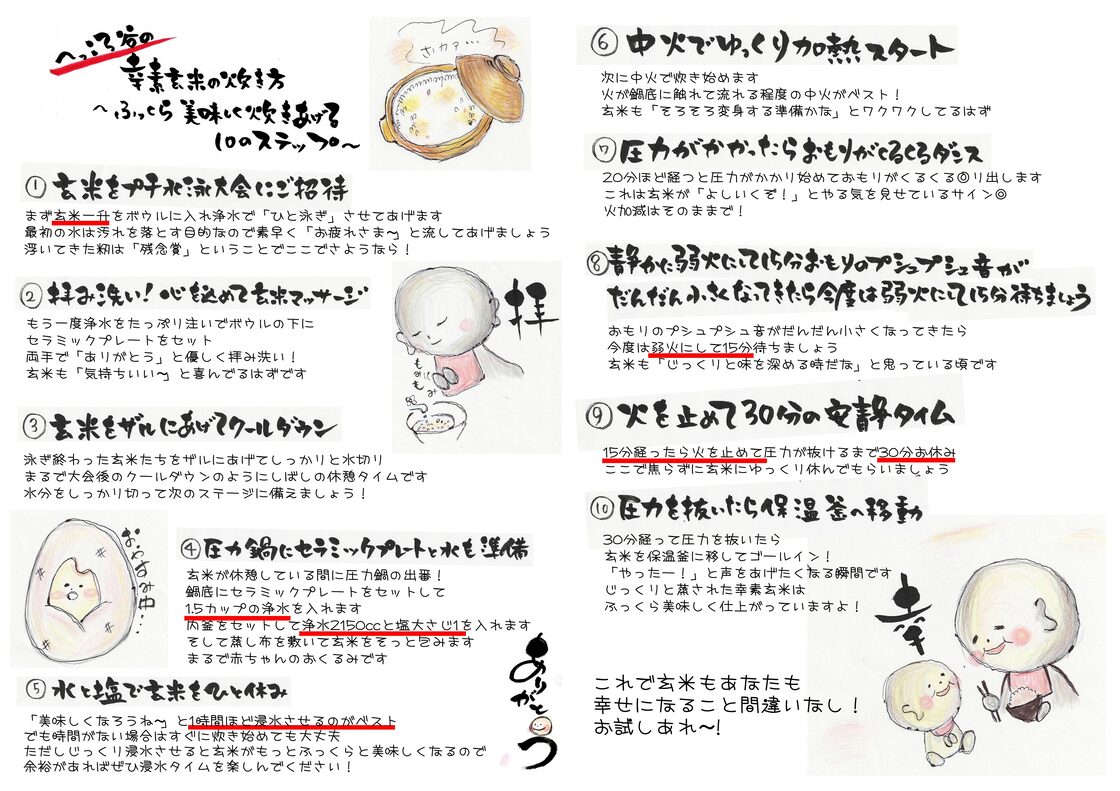 へっころ谷の
幸素玄米の炊き方
～ふっくら美味しく炊きあげる
10のステップ～
さいカァ…
① 玄米をプチ水泳大会にご招待
まず玄米一升をボウルに入れ浄水で「ひと泳ぎ」させてあげます
最初の水は汚れを落とす目的なので素早く「お疲れさま～」と流してあげましょう
浮いてきた籾は「残念賞」ということでここでさようなら！
② 拝み洗い！心を込めて玄米マッサージ
もう一度浄水をたっぷり注いでボウルの下に
セラミックプレートをセット
両手で「ありがとう」と優しく拝み洗い！
玄米も「気持ちいい～」と喜んでるはずです
拝
もみもみ
③ 玄米をザルにあげてクールダウン
泳ぎ終わった玄米たちをザルにあげてしっかりと水切り
まるで大会後のクールダウンのようにしばしの休憩タイムです
水分をしっかり切って次のステージに備えましょう！
おやすみ中…
④ 圧力鍋にセラミックプレートと水も準備
玄米が休憩している間に圧力鍋の出番！
鍋底にセラミックプレートをセットして
1.5カップの浄水を入れます
内釜をセットして浄水2150ccと塩大さじ1を入れます
そして蒸し布を敷いて玄米をそっと包みます
まるで赤ちゃんのおくるみです
⑤ 水と塩で玄米をひと休み
「美味しくなろうね～」と1時間ほど浸水させるのがベスト
でも時間がない場合はすぐに炊き始めても大丈夫
ただしじっくり浸水させると玄米がもっとふっくらと美味しくなるので
余裕があればぜひ浸水タイムを楽しんでください！
ありがとう
⑥ 中火でゆっくり加熱スタート
次に中火で炊き始めます
火が鍋底に触れて流れる程度の中火がベスト！
玄米も「そろそろ変身する準備かな」とワクワクしてるはず
⑦ 圧力がかかったらおもりがくるくるダンス
20分ほど経つと圧力がかかり始めておもりがくるくる◎り出します
これは玄米が「よしいくぞ！」とやる気を見せているサイン◎
火加減はそのままで！
⑧ 静かに弱火にて15分おもりのプシュプシュ音が
だんだん小さくなってきたら今度は弱火にして15分待ちましょう
おもりのプシュプシュ音がだんだん小さくなってきたら
今度は弱火にして15分待ちましょう
玄米も「じっくりと味を深める時だな」と思っている頃です
⑨ 火を止めて30分の安静タイム
15分経ったら火を止めて圧力が抜けるまで30分お休み
ここで焦らずに玄米にゆっくり休んでもらいましょう
⑩ 圧力を抜いたら保温釜へ移動
30分経って圧力を抜いたら
玄米を保温釜に移してゴールイン！
「やったー！」と声をあげたくなる瞬間です
じっくりと蒸された幸素玄米は
ふっくら美味しく仕上がっていますよ！
幸
これで玄米もあなたも
幸せになること間違いなし！
お試しあれ～！